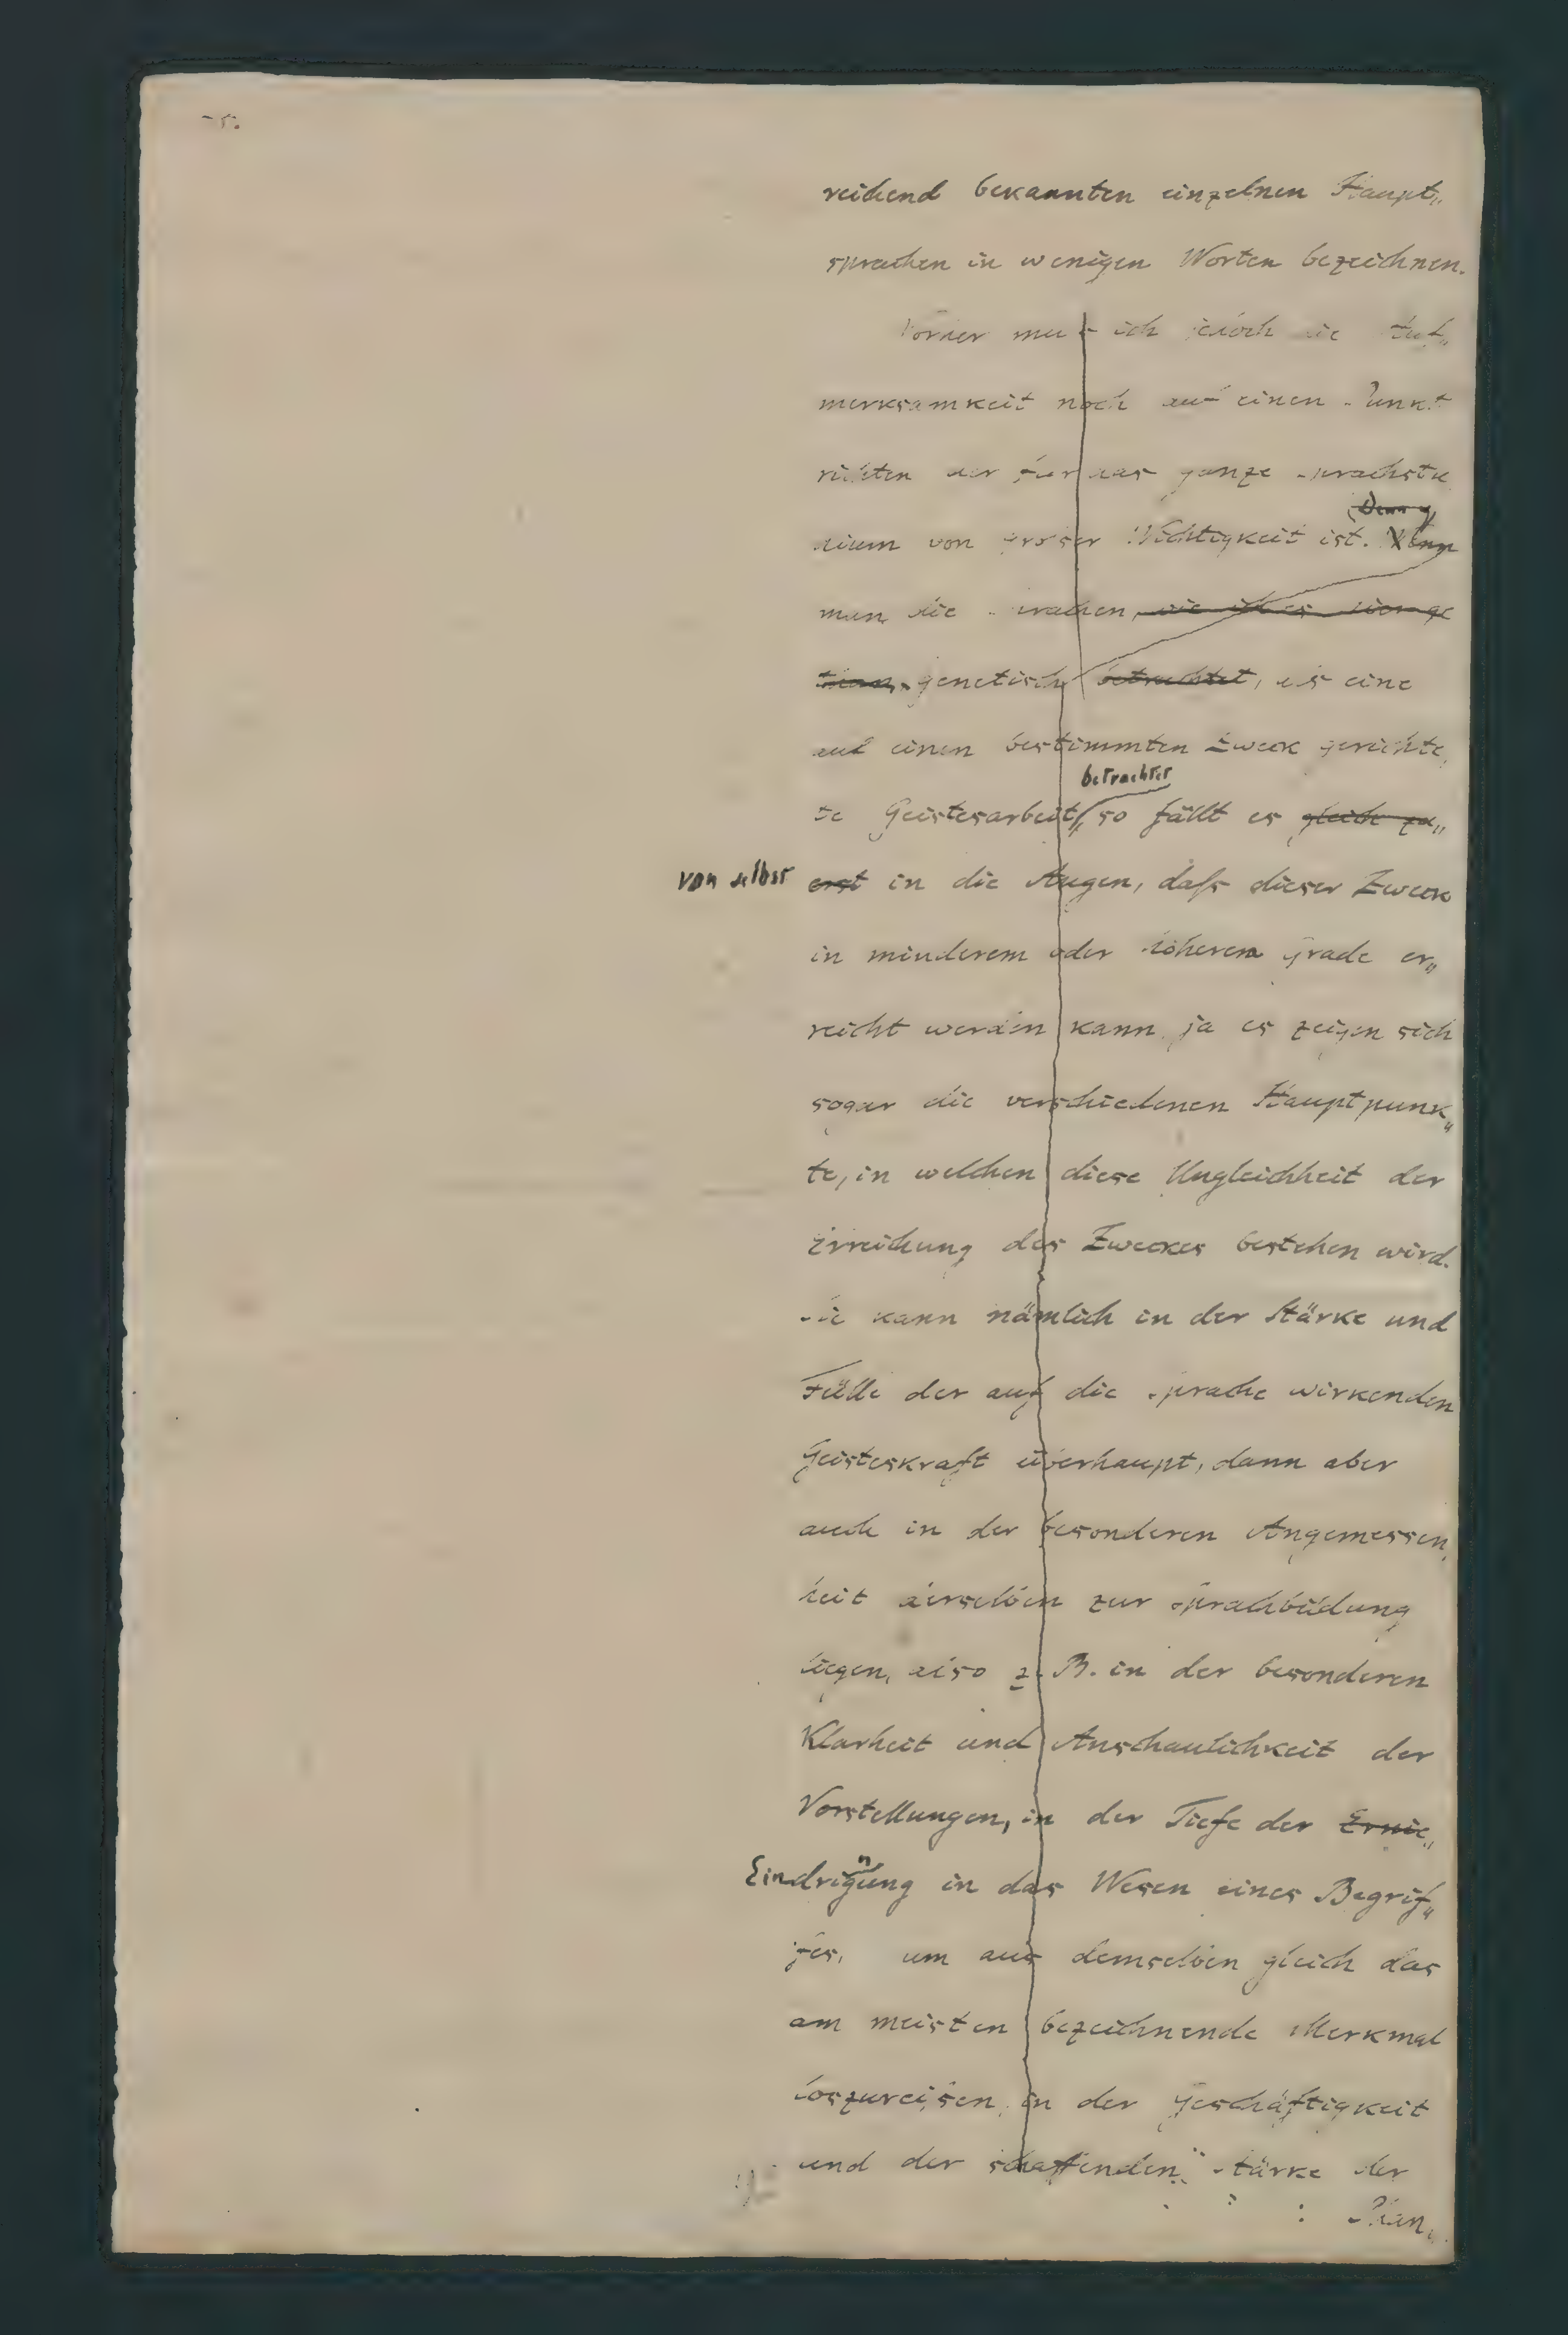 reichend bekannten einzelnen Haupt„
sprachen in wenigen Worten bezeichnen.
Vorher muß ich jedoch die Auf„
merksamkeit noch auf einen Punkt
richten der für das ganze Sprachstu
dium von großer Wichtigkeit ist. Wenn
Denn
man die Sprachen, wie ich es hier ge
than, genetisch betrachtet, als eine
auf einen bestimmten Zweck gerichte„
betrachtet
te Geistesarbeit, so fällt es gleich zu„
von selbst erst in die Augen, daſs dieser Zweck
in minderem oder höherem Grade er„
reicht werden kann, ja es zeigen sich
sogar die verschiedenen Hauptpunk„
te, in welchen diese Ungleichheit der
Erreichung des Zweckes bestehen wird.
Sie kann nämlich in der Stärke und
Fülle der auf die Sprache wirkenden
Geisteskraft überhaupt, dann aber
auch in der besonderen Angemessen„
heit derselben zur Sprachbildung
liegen, also z. B. in der besonderen
Klarheit und Anschaulichkeit der
Vorstellungen, in der Tiefe der
Eindringung in das Wesen eines Begrif„
fes, um aus demselben gleich das
am meisten bezeichnende Merkmal
loszureißen, in der Geschäftigkeit
und der schaffenden Stärke der
Phan„